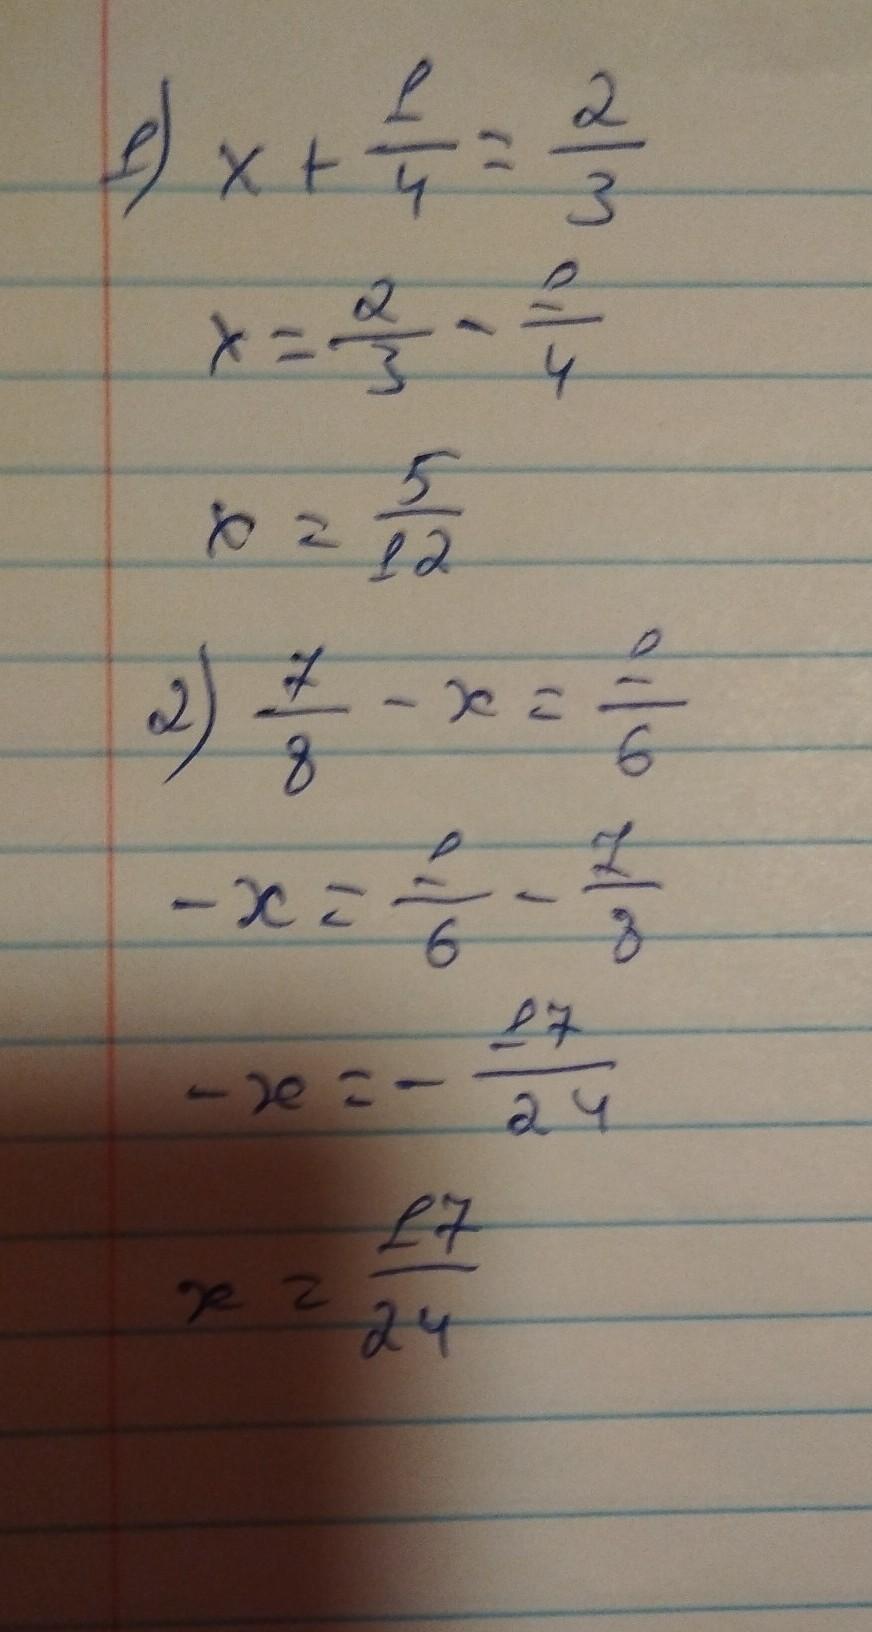 1) x + 1/4 = 2/3
x = 2/3 - 1/4
x = 5/12
2) 7/8 - x = 1/6
-x = 1/6 - 7/8
-x = - 17/24
x = 17/24